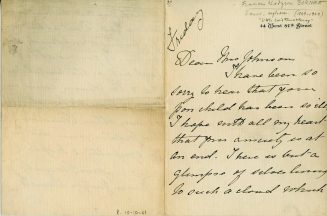 Friday
44 West 87th Street
Dear Mrs Johnson
I have been so
sorry to hear that your
poor child has been so ill.
I hope with all my heart
that your anxiety is at
an end. There is but a
glimpse of silver lining
to such a cloud which